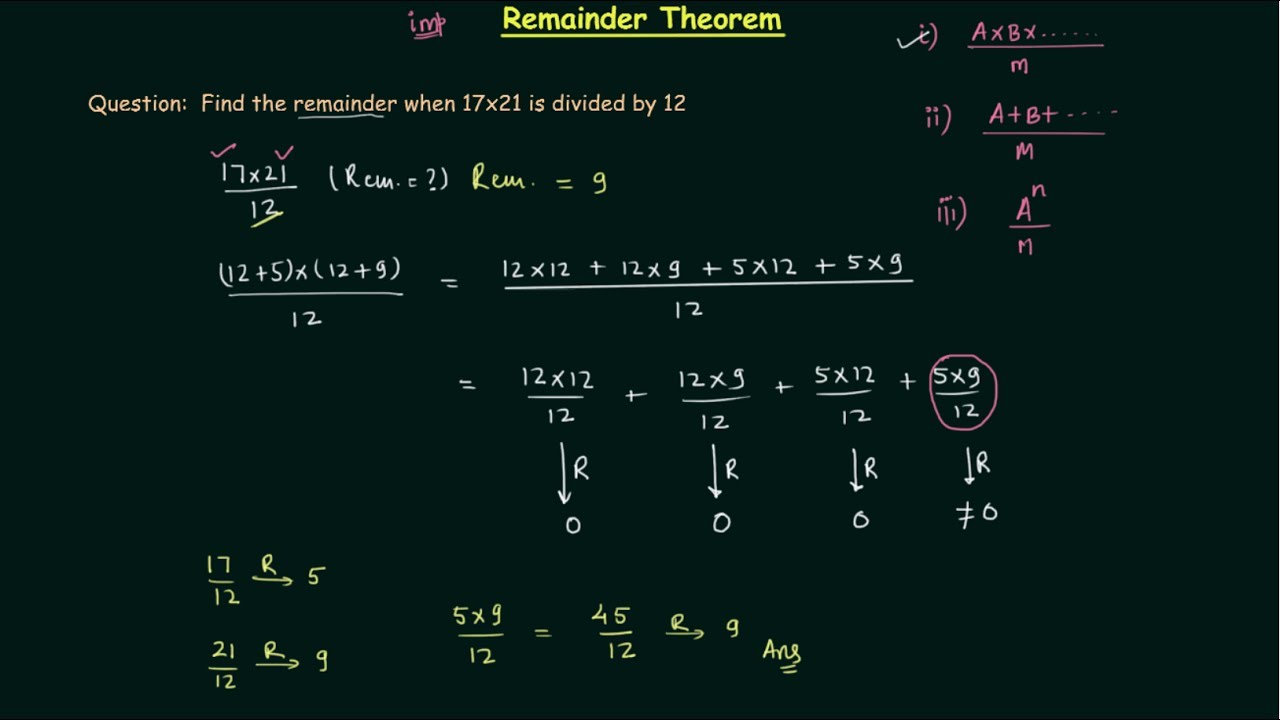 imp Remainder Theorem
i) A×B×......
m
ii) A+B+....
M
iii) Aⁿ
M
Question: Find the remainder when 17x21 is divided by 12
17×21 (Rem.=?) Rem. = 9
12
(12+5)×(12+9) = 12×12 + 12×9 + 5×12 + 5×9
12 12
= 12×12 + 12×9 + 5×12 + 5×9
12 12 12 12
R R R R
0 0 0 ≠0
17 R 5
12
21 R 9
12
5×9 = 45 R 9
12 12
Ans